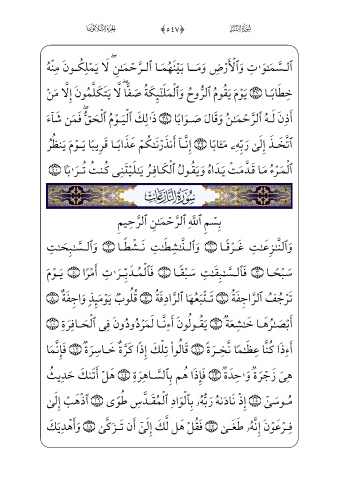 سُورَةُ النَّبَإِ ﴿٥٤٧﴾ الجُزءُ الثَّلَاثُونَ
ٱلسَّمَٰوَٰتِ وَٱلْأَرْضِ وَمَا بَيْنَهُمَا ٱلرَّحْمَٰنِ ۖ لَا يَمْلِكُونَ مِنْهُ
خِطَابًا ۝ يَوْمَ يَقُومُ ٱلرُّوحُ وَٱلْمَلَٰٓئِكَةُ صَفًّا ۖ لَّا يَتَكَلَّمُونَ إِلَّا مَنْ
أَذِنَ لَهُ ٱلرَّحْمَٰنُ وَقَالَ صَوَابًا ۝ ذَٰلِكَ ٱلْيَوْمُ ٱلْحَقُّ ۖ فَمَن شَآءَ
ٱتَّخَذَ إِلَىٰ رَبِّهِۦ مَـَٔابًا ۝ إِنَّآ أَنذَرْنَٰكُمْ عَذَابًا قَرِيبًا يَوْمَ يَنظُرُ
ٱلْمَرْءُ مَا قَدَّمَتْ يَدَاهُ وَيَقُولُ ٱلْكَافِرُ يَٰلَيْتَنِى كُنتُ تُرَٰبًۢا ۝
سُورَةُ النَّازِعَاتِ
بِسْمِ ٱللَّهِ ٱلرَّحْمَٰنِ ٱلرَّحِيمِ
وَٱلنَّٰزِعَٰتِ غَرْقًا ۝ وَٱلنَّٰشِطَٰتِ نَشْطًا ۝ وَٱلسَّٰبِحَٰتِ
سَبْحًا ۝ فَٱلسَّٰبِقَٰتِ سَبْقًا ۝ فَٱلْمُدَبِّرَٰتِ أَمْرًا ۝ يَوْمَ
تَرْجُفُ ٱلرَّاجِفَةُ ۝ تَتْبَعُهَا ٱلرَّادِفَةُ ۝ قُلُوبٌ يَوْمَئِذٍ وَاجِفَةٌ ۝
أَبْصَٰرُهَا خَٰشِعَةٌ ۝ يَقُولُونَ أَءِنَّا لَمَرْدُودُونَ فِى ٱلْحَافِرَةِ ۝
أَءِذَا كُنَّا عِظَٰمًا نَّخِرَةً ۝ قَالُوا۟ تِلْكَ إِذًا كَرَّةٌ خَاسِرَةٌ ۝ فَإِنَّمَا
هِىَ زَجْرَةٌ وَٰحِدَةٌ ۝ فَإِذَا هُم بِٱلسَّاهِرَةِ ۝ هَلْ أَتَىٰكَ حَدِيثُ
مُوسَىٰٓ ۝ إِذْ نَادَىٰهُ رَبُّهُۥ بِٱلْوَادِ ٱلْمُقَدَّسِ طُوًى ۝ ٱذْهَبْ إِلَىٰ
فِرْعَوْنَ إِنَّهُۥ طَغَىٰ ۝ فَقُلْ هَل لَّكَ إِلَىٰٓ أَن تَزَكَّىٰ ۝ وَأَهْدِيَكَ